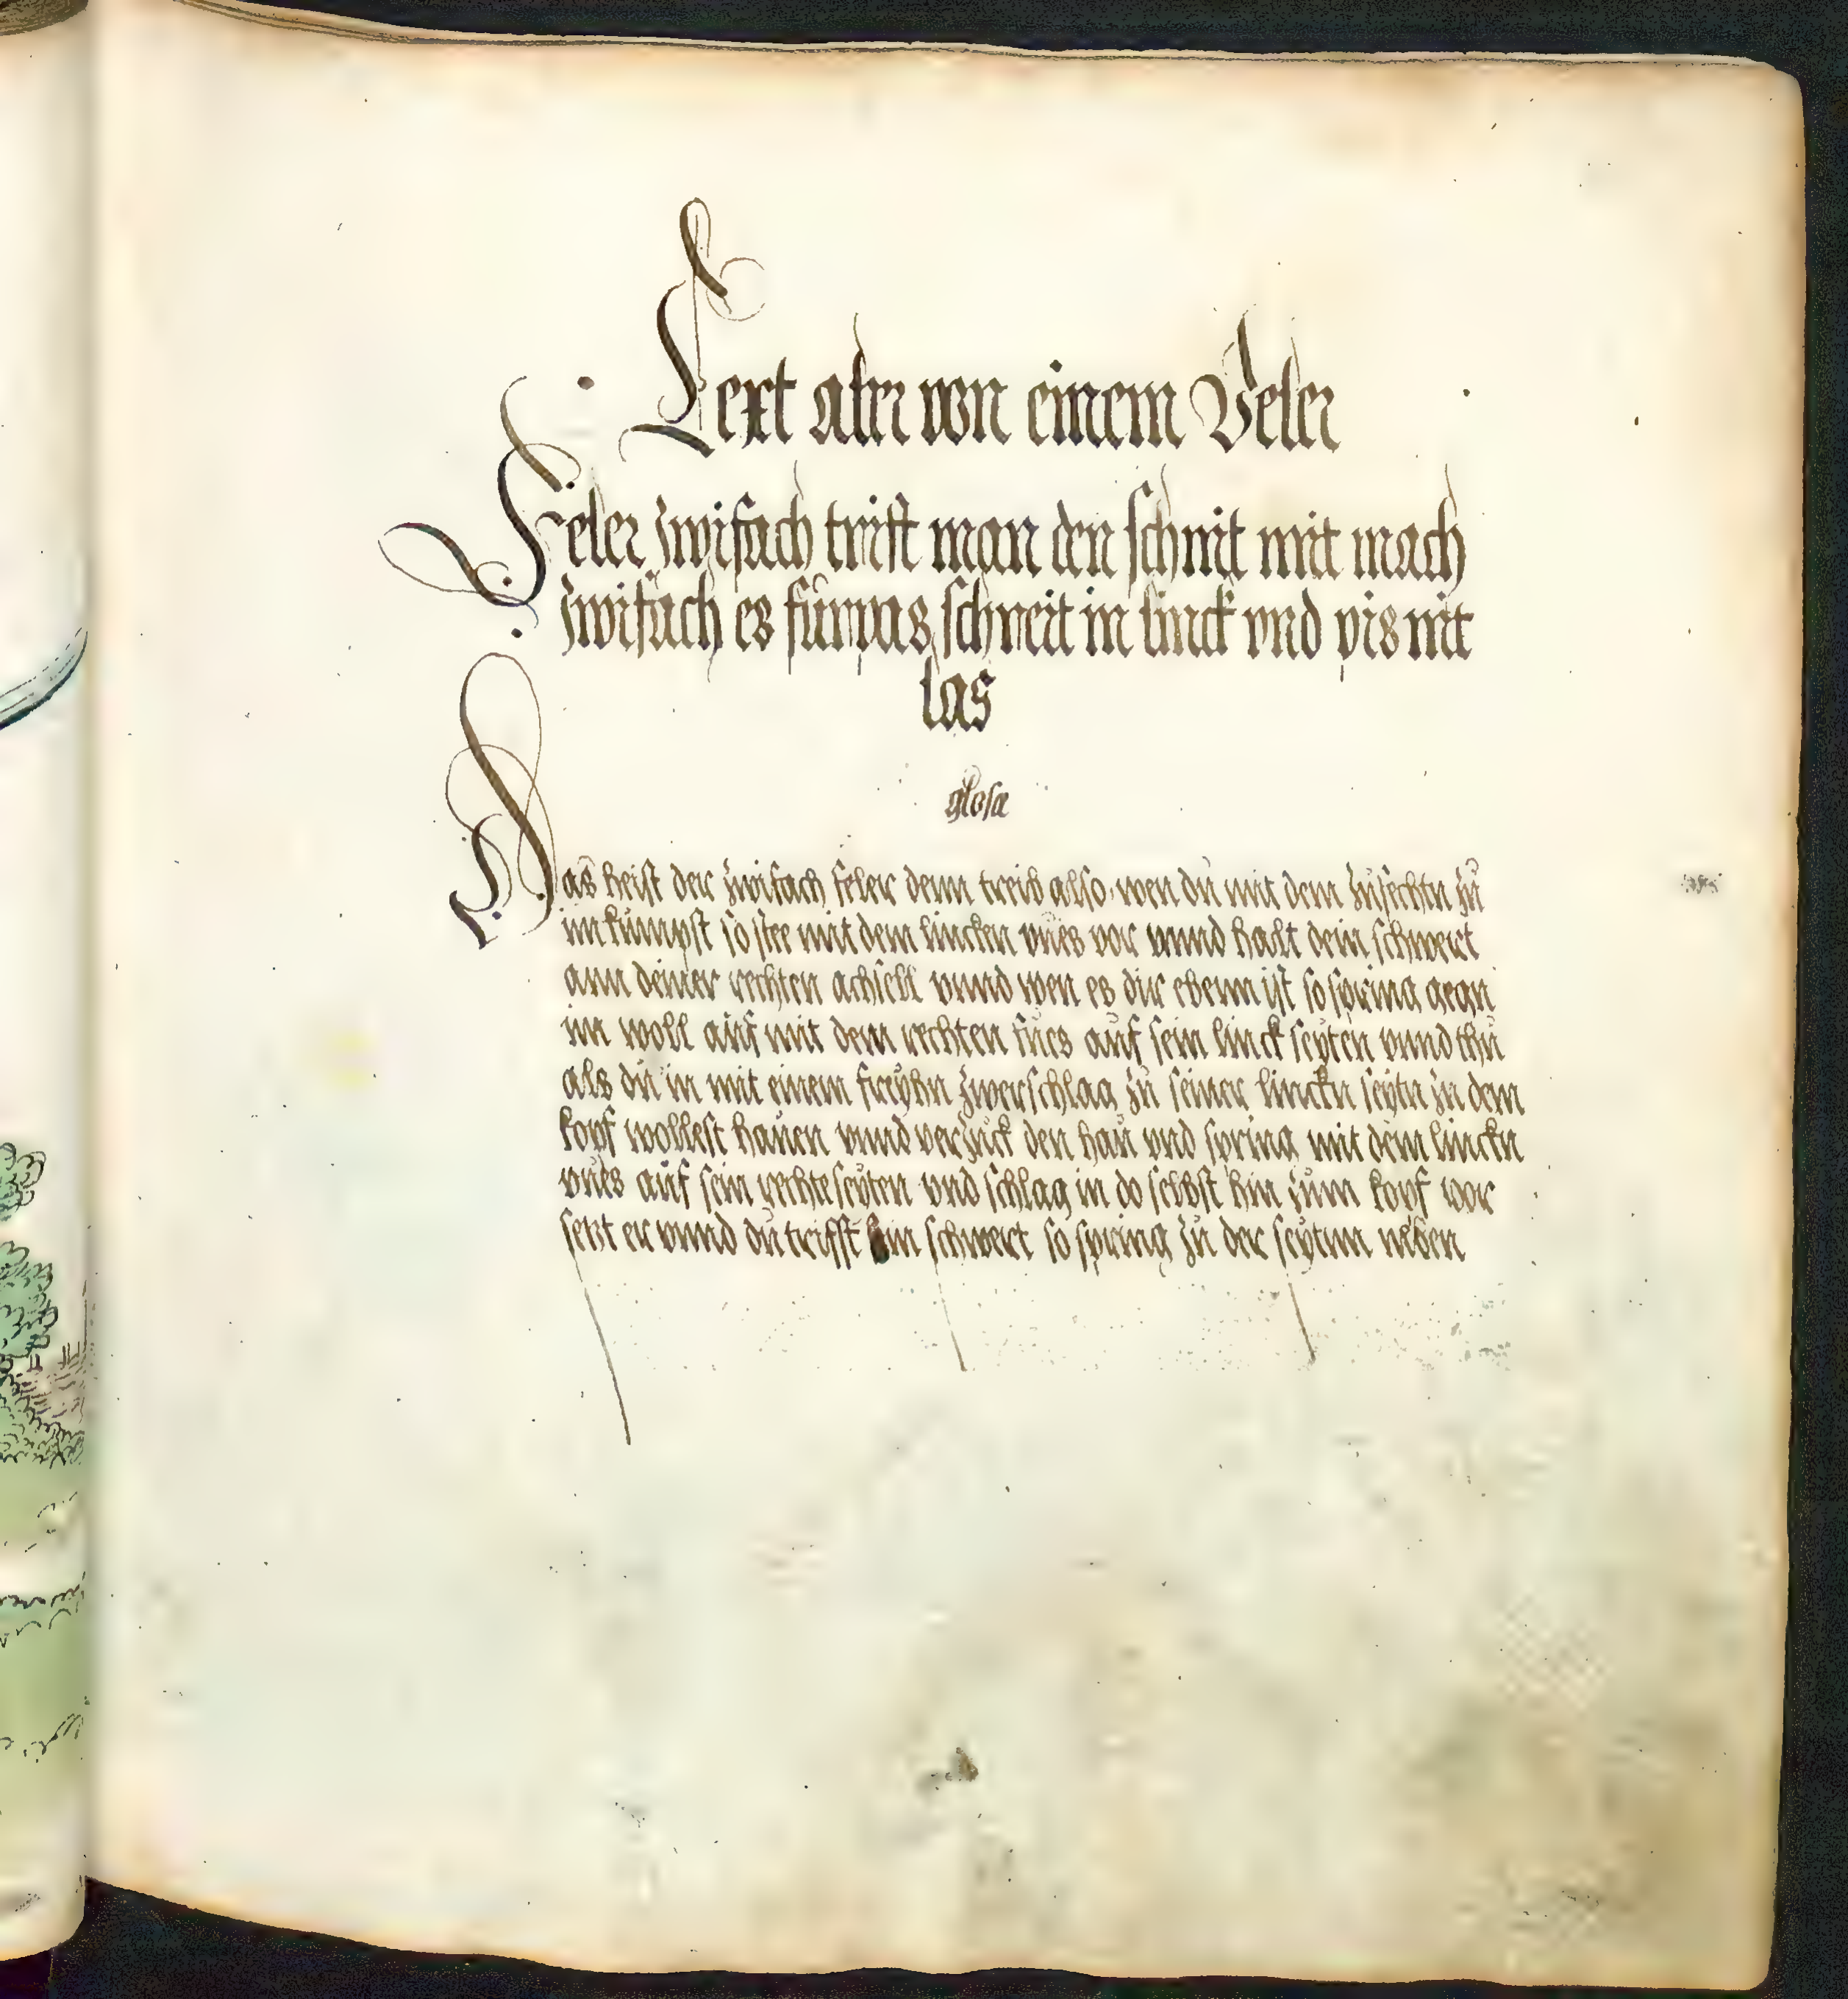 Text aber von einem Veler
Feler zwifach trift man den schnit mit mach
zwifach es fürpas schneit in linck vnd pis nit
las
glosa
Das heist der zwifach feler denn treib also wen dü mit dem züfechtn zü
im kümpst so stee mit dem lincken vües vor vnnd halt dein schwert
ann deiner rechten achsell vnnd wen es dir ebenn ist so spring gegn
im woll aüf mit dem rechten fües aüf sein linck seyten vnnd thü
als dü in mit einem freyhn zwerschlag zü seiner linckn seytn zü dem
kopf wollest haüen vnnd verzück den haü vnd spring mit dem linckn
vües aüf sein rechte seyten vnd schlag in do selbst hin züm kopf vor
setzt er vnnd dü triffst sin schwert so spring zü der seytnn neben